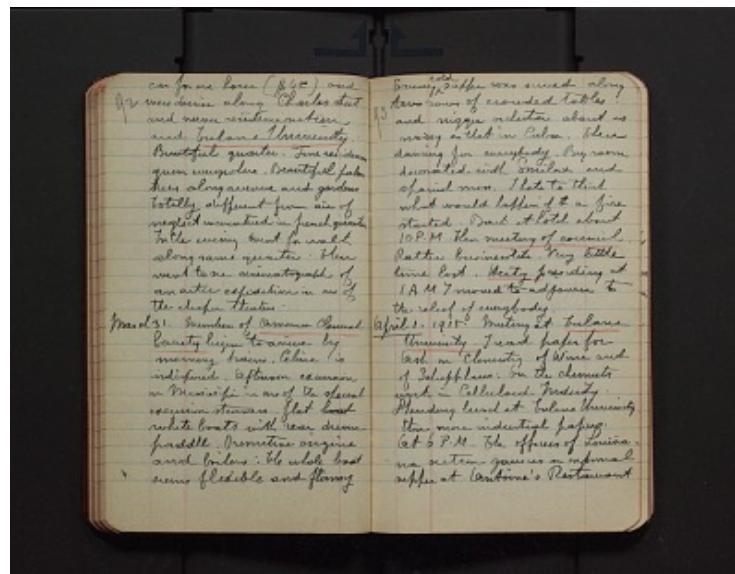 car for one hour ($4.00) and
92 were driven along Charles street
and newer residence section
and Tulane University.
Beautiful quarter. Fine residences
queer everywhere. Beautiful palm
trees along avenue and gardens
totally different from air of
neglect unnoticed in french quarter
In the evening went for walk
along same quarter. Then
went to see cinematograph of
an artic expedition in one of
the cheaper theatres.
March 31. Members of American Chemical
Society begin to arrive by
morning trains. Celine is
indisposed. Afternoon excursion
on Mississipi in one of the special
excursion steamers. flat boat
white boats with rear driven
paddle. Primitive engine
and boilers. The whole boat
seems flexible and flimsy
93 Evening cold supper was served along
rows of crowded tables!
and nigger orchestra about as
noisy as that in Cuba. Then
dancing for everybody. Big room
decorated with Smilax and
spanish moss. I hate to think
what would happen if a fire
started. Back at hotel about
10 P.M. then meeting of council.
Rather businesslike. Very little
time lost. Hearty presiding at
1 A M I moved to adjourn to
the relief of everybody.
April 1. 1915. Meeting at Tulane
University. I read paper for
on Chemistry of Wine and
of. On the chemists
work in Celluloid Industry.
lunch at Tulane University
then more industrial papers.
At 6 P.M. the officers of Louisia-
na section gave us an informal
supper at Antoine's Restaurant